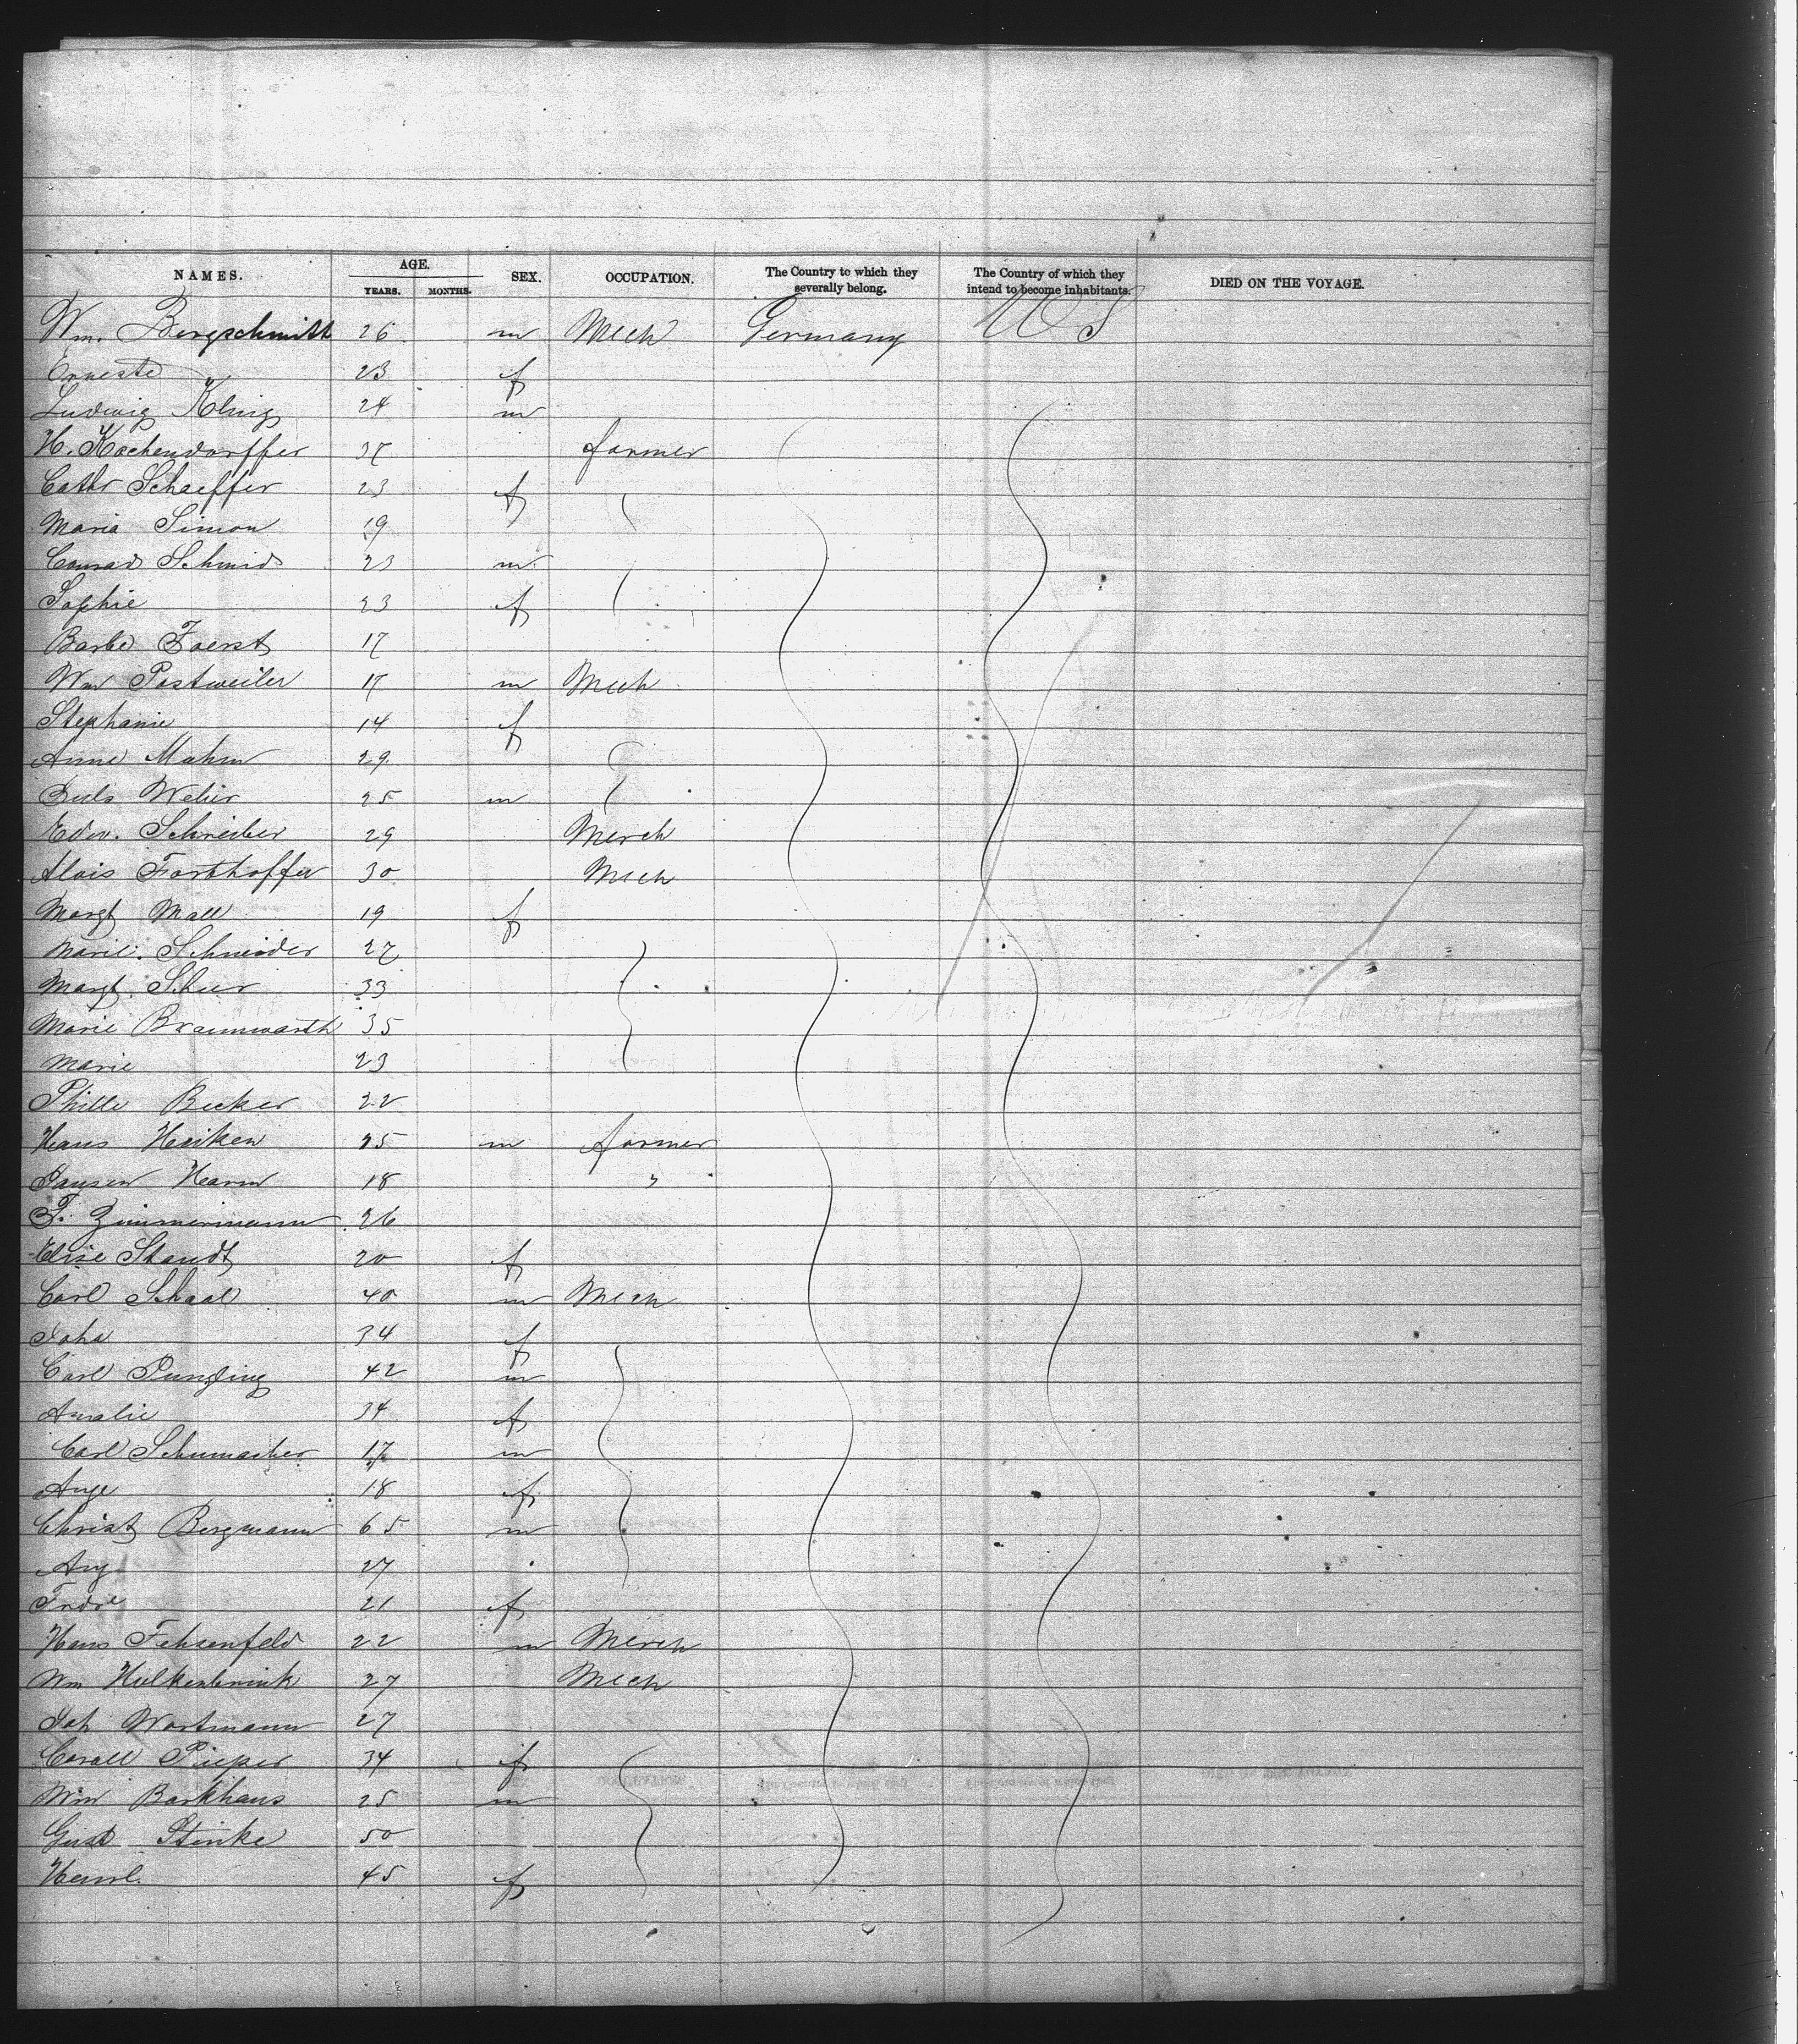 NAMES. AGE. YEARS. MONTHS. SEX. OCCUPATION. The Country to which they severally belong. The Country of which they intend to become inhabitants. DIED ON THE VOYAGE.
Wm. Bergschmitt 26 m Mech Germany US
Erneste 23 f
Ludwig König 24 m
H. Kochendorffer 37 farmer
Cathr Schaeffer 23 f
Maria Simon 19
Conrad Schmid 23 m
Sophie 23 f
Barbe Foerst 17
Wm Postweiler 17 m Mech
Stephanie 14 f
Anne Mahm 29
Weber 25 m
Edw. Schreiber 29 Merch
Alois Forthoffer 30 Mech
Margt Mall 19 f
Marie Schneider 27
Margt. Scheer 33
Marie Braunwarth 35
Marie 23
Becker 22
Hans Heiken 25 m farmer
Harm 18 "
F. Zimmermann 26
Elise Staudt 20 f
Carl Schaal 40 m Mech
Joha 34 f
Carl 42 m
Amalie 34 f
Carl Schumacher 17 m
18 f
Christ Bergmann 65 m
Aug 27
21 f
Hans Fehsenfeld 22 m Merch
Wm Hulkenbrink 27 Mech
Joh Wortmann 27
Pieper 34 f
Wm Barkhaus 25 m
Gust Stinke 50
45 f